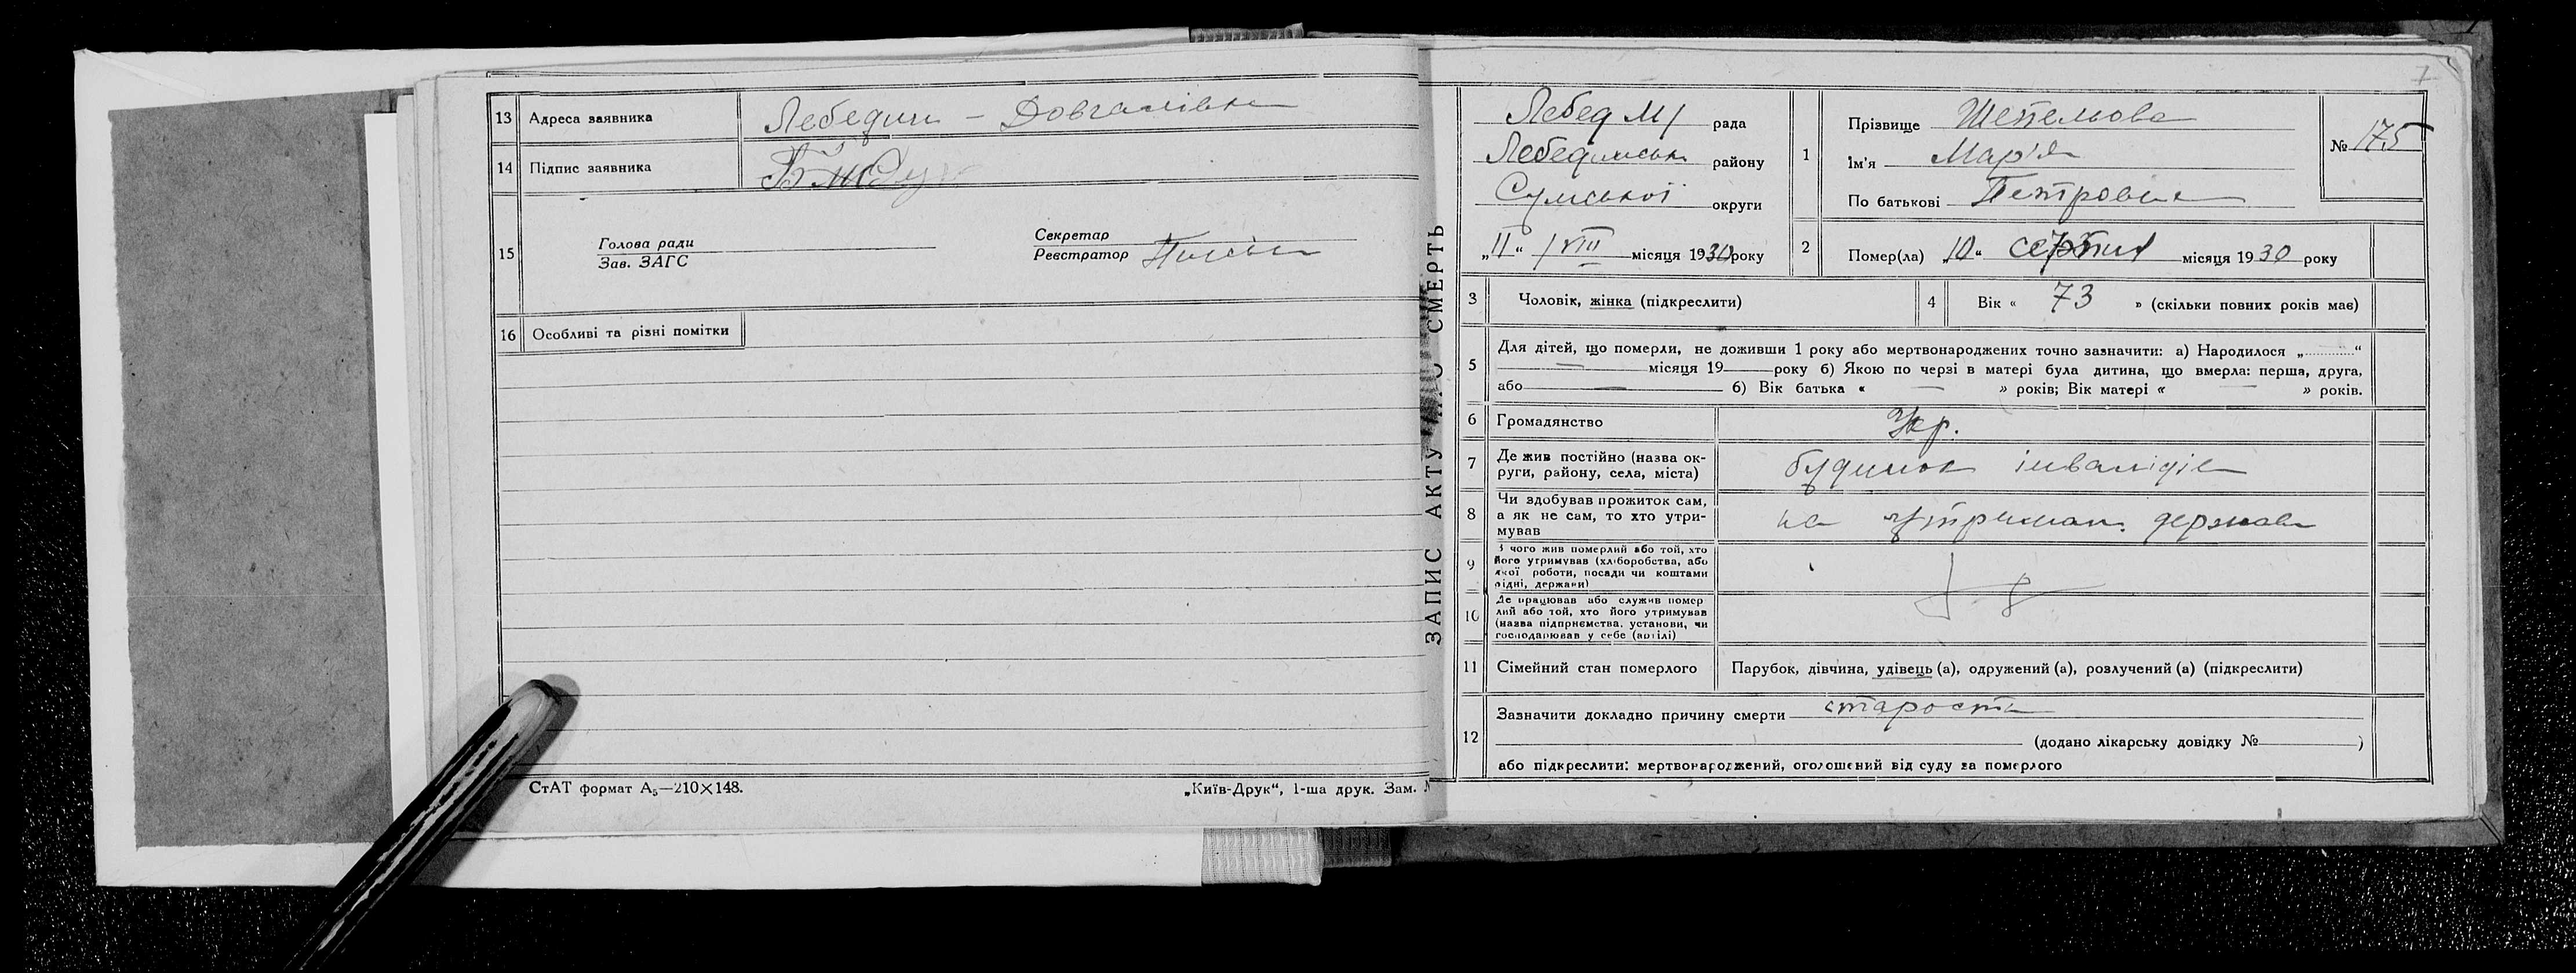 13 Адреса заявника Лебедин – Довгалівка
14 Підпис заявника
15 Голова ради
Зав. ЗАГС
Секретар
Реєстратор
16 Особливі та різні помітки
СтАТ формат А₅—210×148.
„Київ-Друк“, 1-ша друк. Зам. №
ЗАПИС АКТУ ПРО СМЕРТЬ
7
Лебед М/ рада
Лебединськ району
Сумської округи
„11“ / VIII місяця 1930 року
1 Прізвище Шепельова
Ім'я Мар'я
По батькові Петровна
№ 175
2 Помер(ла) „10“ серпня місяця 1930 року
3 Чоловік, жінка (підкреслити)
4 Вік « 73 » (скільки повних років має)
5 Для дітей, що померли, не доживши 1 року або мертвонароджених точно зазначити: а) Народилося „..........“
— місяця 19 — року б) Якою по черзі в матері була дитина, що вмерла: перша, друга,
або — б) Вік батька « — » років; Вік матері « — » років.
6 Громадянство Укр.
7 Де жив постійно (назва ок-
руги, району, села, міста) будинок інвалідів
8 Чи здобував прожиток сам,
а як не сам, то хто утри-
мував на утриман. держави
9 З чого жив померлий або той, хто
його утримував (хліборобства, або
якої роботи, посади чи коштами
рідні, держави)
10 Де працював або служив помер
лий або той, хто його утримував
(назва підприємства, установи, чи
господарював у себе (артілі)
11 Сімейний стан померлого Парубок, дівчина, удівець (а), одружений (а), розлучений (а) (підкреслити)
12 Зазначити докладно причину смерти старости
(додано лікарську довідку № )
або підкреслити: мертвонароджений, оголошений від суду за померлого